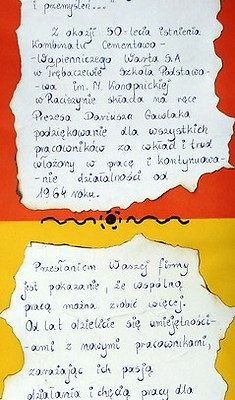 i przemyśleń...
Z okazji 50-lecia istnienia
Kombinatu Cementowo -
-Wapienniczego Warta S.A
w Trębaczewie Szkoła Podstawo-
-wa im. M. Konopnickiej
w Raciszynie składa na ręce
Prezesa Dariusza Gawlaka
podziękowanie dla wszystkich
pracowników za wkład i trud
włożony w pracę i kontynuowa-
-nie działalności od
1964 roku.
Przesłaniem Waszej firmy
jest pokazanie, że wspólną
pracą można zrobić więcej.
Od lat dzielicie się umiejętności-
-ami z nowymi pracownikami,
zarażając ich pasją
działania i chęcią pracy dla